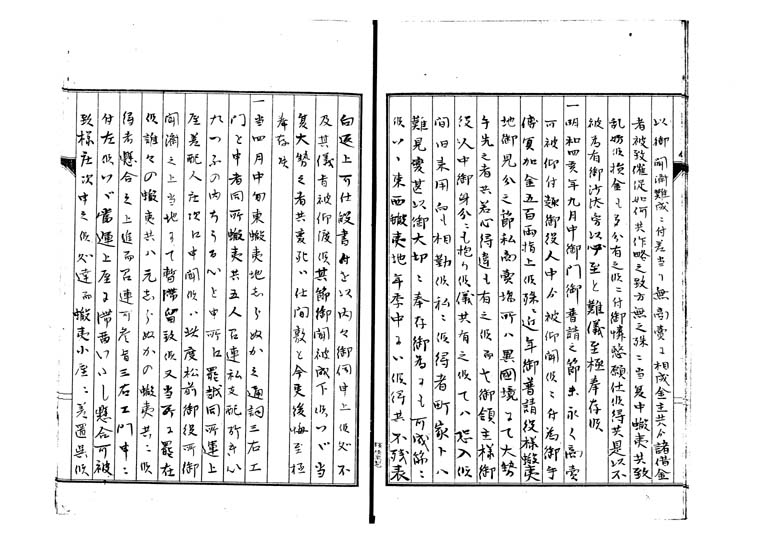 以御聞済難成ニ付差当り無商売ニ相成金主共ゟ諸借金
者被致催促如何共作略之致方無之殊ニ当夏中蝦夷共致
乱妨候損金も多分有之候ニ付御憐愍願仕候得共是以不
被為有御沙汰旁以必至と難儀至極奉存候
一明和四亥年九月中御門御普請之節末永く商売
可被仰付趣御役人中ゟ被仰聞候ニ付為御手
伝冥加金五百両指上候殊ニ近年御普請役様蝦夷
地御見分之節私商売場所ハ異国境にて大勢
手先之者共若心得違も有之候而ハ御領主様御
役人中御身分ニも抱り候儀共有之候てハ恐入候
間旧来用向も相勤候私ニ候得者町家下ハ
難見変甚以御大切ニ奉存御為にも可成筋ニ
候ハヽ東西蝦夷地年季中ニハ候得共不残表
向返上可仕段書付を以内々御伺申上候処不
及其儀者被仰渡候其節御聞被成下候ハヽ当
夏大勢之者共変死ハ仕間敷と今更後悔至極
奉存候
一当四月中旬東蝦夷地志らぬかと通詞三右エ
門と申者同所蝦夷共五人召連私支配所きい
たつふの内ちうるいと申所江罷越同所運上
座差配人左次兵衛江申聞候ハ此度松前御役所御
聞済之上当地にて暫滞留致候又当所に罷在
候誰々の蝦夷共ハ元志らぬかの蝦夷共ニ候
得者懸合之上追而召連可参旨三右エ門申ニ
付左候ハヽ当運上座に滞留いたし懸合可被
致様左次申之候処達而蝦夷小屋ニ差置呉候